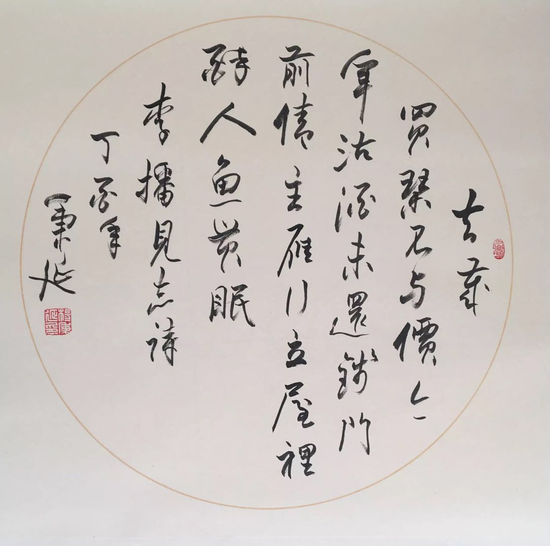 去歲
買琴不與價今
年沽酒未還錢門
前債主雁行立屋裡
醉人魚貫眠
李播見志詩
丁酉年